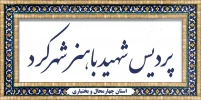 پردیس شهید باهنر شهرکرد
استان چهارمحال و بختیاری